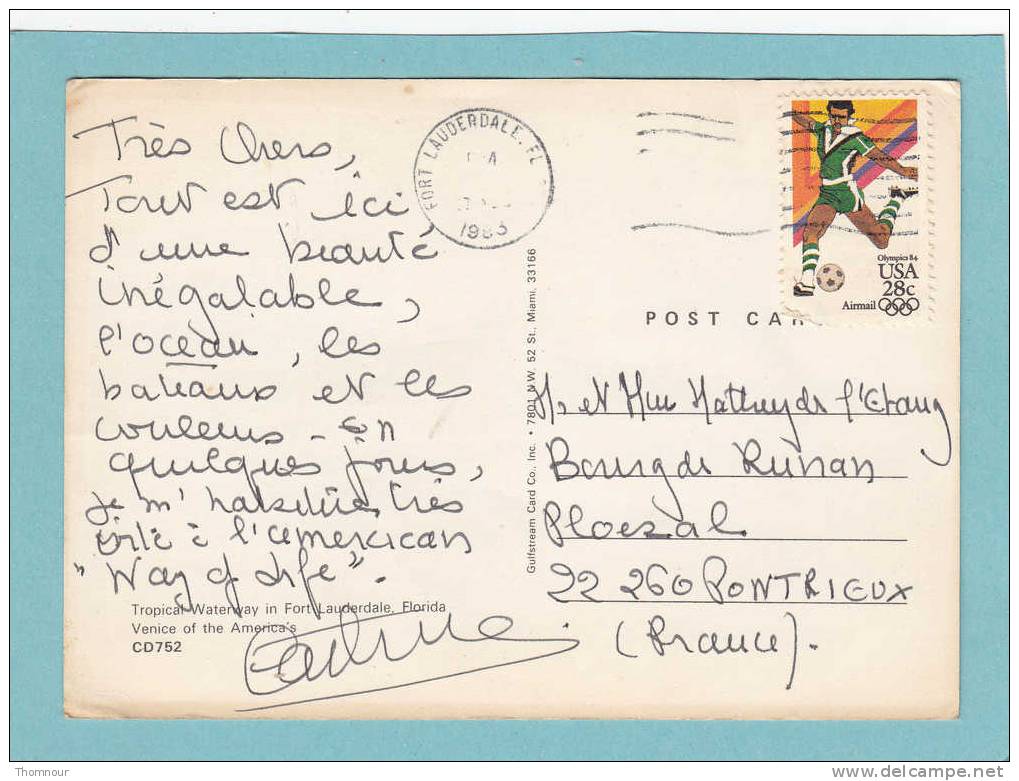 Très Chers,
Tout est ici
d'une beauté
inégalable,
l'océan, les
bateaux et les
couleurs - En
quelques jours,
je m'habitue très
vite à l'american
"Way of Life".
Tropical Waterway in Fort Lauderdale, Florida
Venice of the America's
CD752
FORT LAUDERDALE, FL
1983
Gulfstream Card Co., Inc. • 7801 N.W. 52 St., Miami, 33166
Olympics 84
USA
28c
Airmail
POST CAR
M. et Mme de l'Etang
Bourg de Runan
Ploezal
22 260 PONTRIEUX
(France).
Thomnour
delcampe.net